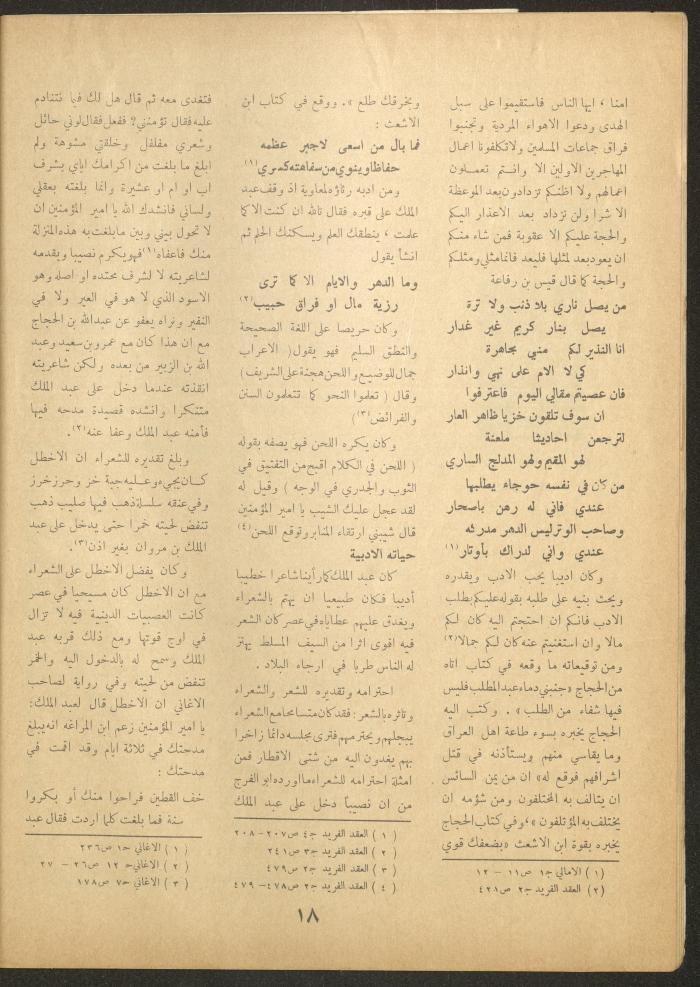 امنا ، ايها الناس فاستقيموا على سبل
الهدى ودعوا الاهواء المردية وتجنبوا
فراق جماعات المسلمين ولا تكلفونا اعمال
المهاجرين الاولين الا وانتم تعملون
اعمالهم ولا اظنكم تزدادون بعد الموعظة
الا شرا ولن نزداد بعد الاعذار اليكم
والحجة عليكم الا عقوبة فمن شاء منكم
ان يعود بعد لمثلها فليعد فانما مثلي ومثلكم
والحجة كما قال قيس بن رفاعة
من يصل ناري بلا ذنب ولا ترة
يصل بنار كريم غير غدار
انا النذير لكم مني مجاهرة
كي لا الام على نهي وانذار
فان عصيتم مقالي اليوم فاعترفوا
ان سوف تلقون خزيا ظاهر العار
لترجعن احاديثا ملعنة
لهو المقيم ولهو المدلج الساري
من كان في نفسه حوجاء يطلبها
عندي فاني له رهن باصحار
وصاحب الوتر ليس الدهر مدركه
عندي واني لدراك بأوتار (١)
وكان اديبا يحب الادب ويقدره
ويحث بنيه على طلبه بقوله عليكم بطلب
الادب فانكم ان احتجتم اليه كان لكم
مالا وان استغنيتم عنه كان لكم جمالا (٢)
ومن توقيعاته ما وقعه في كتاب اتاه
من الحجاج «جنبني دماء عبد المطلب فليس
فيها شفاء من الطلب» . وكتب اليه
الحجاج يخبره بسوء طاعة اهل العراق
وما يقاسي منهم ويستأذنه في قتل
اشرافهم فوقع له» ان من يمن السائس
ان يتالف به المختلفون ومن شؤمه ان
يختلف به المؤتلفون » ، وفي كتاب الحجاج
يخبره بقوة ابن الاشعث «بضعفك قوي
(١) الامالي ج١ ص١١ – ١٢
(٢) العقد الفريد ج٢ ص٤٢١
وبخرقك طلع » . ووقع في كتاب ابن
الاشعث :
فما بال من اسعى لاجبر عظمه
حفاظا وينوي من سفاهته كسري (١)
ومن ادبه رثاؤه لمعاوية اذ وقف عبد
الملك على قبره فقال تالله ان كنت الا كما
علمت ، ينطقك العلم ويسكتك الحلم ثم
انشأ يقول
وما الدهر والايام الا كما ترى
رزية مال او فراق حبيب (٢)
وكان حريصا على اللغة الصحيحة
والنطق السليم فهو يقول ( الاعراب
جمال للوضيع واللحن هجنة على الشريف )
وقال ( تعلموا النحو كما تتعلمون السنن
والفرائض (٣)
وكان يكره اللحن فهو يصفه بقوله
( اللحن في الكلام اقبح من التفتيق في
الثوب والجدري في الوجه ) وقيل له
لقد عجل عليك الشيب يا امير المؤمنين
قال شيبني ارتقاء المنابر وتوقع اللحن (٤)
حياته الادبية
كان عبد الملك كما رأينا شاعرا خطيبا
أديبا فكان طبيعيا ان يهتم بالشعراء
ويغدق عليهم عطاياه في عصر كان الشعر
فيه اقوى اثرا من السيف المسلط يهتز
له الناس طربا في ارجاء البلاد .
احترامه وتقديره للشعر والشعراء
وتاثره بالشعر : فقد كان متسامحا مع الشعراء
يبجلهم ويحترمهم فترى مجلسه دائما زاخرا
بهم يغدون اليه من شتى الاقطار فمن
امثلة احترامه للشعراء ما اورده ابو الفرج
من ان نصيباً دخل على عبد الملك
( ١ ) العقد الفريد ج٤ ص٢٠٧–٢٠٨
( ٢ ) العقد الفريد ج٣ ص٢٤١
( ٣ ) العقد الفريد ج٢ ص٤٧٩
( ٤ ) العقد الفريد ج٢ ص٤٧٨– ٤٧٩
فتغدى معه ثم قال هل لك فيما نتنادم
عليه فقال تؤمنني؟ ففعل فقال لوني حائل
وشعري مفلفل وخلقتي مشوهة ولم
ابلغ ما بلغت من اكرامك اياي بشرف
اب او ام او عشيرة وانما بلغته بعقلي
ولساني فانشدك الله يا امير المؤمنين ان
لا تحول بيني وبين ما بلغت به هذه المنزلة
منك فاعفاه (١) فهو يكرم نصيبا ويقدمه
لشاعريته لا لشرف محتده او اصله وهو
الاسود الذي لا هو في العير ولا في
النفير ونراه يعفو عن عبدالله بن الحجاج
مع ان هذا كان مع عمرو بن سعيد وعبد
الله بن الزبير من بعده ولكن شاعريته
انقذته عندما دخل على عبد الملك
متنكرا وانشده قصيدة مدحه فيها
فأمنه عبد الملك وعفا عنه (٢).
وبلغ تقديره للشعراء ان الاخطل
كان يجيء وعليه جبة خز وحرز خرز
وفي عنقه سلسلة ذهب فيها صليب ذهب
تنفض لحيته خمرا حتى يدخل على عبد
الملك بن مروان بغير اذن (٣).
وكان يفضل الاخطل على الشعراء
مع ان الاخطل كان مسيحيا في عصر
كانت العصبيات الدينية فيه لا تزال
في اوج قوتها ومع ذلك قربه عبد
الملك وسمح له بالدخول اليه والخمر
تنفض من لحيته وفي رواية لصاحب
الاغاني ان الاخطل قال لعبد الملك:
يا امير المؤمنين زعم ابن المراغه انه يبلغ
مدحتك في ثلاثة ايام وقد اقمت في
مدحتك :
خف القطين فراحوا منك أو بكروا
سنة فما بلغت كلما اردت فقال عبد
( ١ ) الاغاني ح١ ص٢٣٦
( ٢ ) الاغاني ح ١٢ ص٢٦ – ٢٧
( ٣ ) الاغاني ح٧ ص١٧٨
١٨